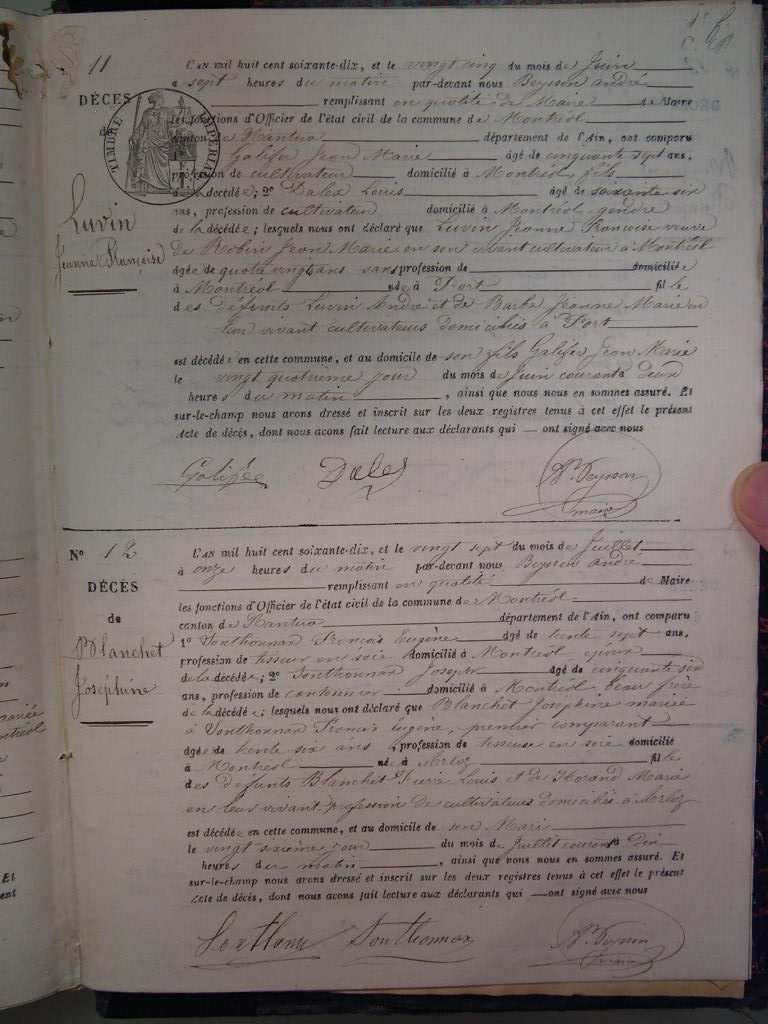 11
L'AN mil huit cent soixante-dix, et le vingt cinq du mois de Juin
à sept heures du matin par-devant nous Beysson André
DÉCÈS
remplissant en qualité de Maire de Maire
de
les fonctions d'Officier de l'état civil de la commune de Montréal
TIMBRE IMPÉRIAL
canton de Nantua département de l'Ain, ont comparu
Galifer Jean Marie âgé de cinquante sept ans,
profession de cultivateur domicilié à Montréol fils
de la décédée; 2° Dalex Louis âgé de soixante six
Luvin
Jeanne Françoise
ans, profession de cultivateur domicilié à Montréol gendre
de la décédée; lesquels nous ont déclaré que Luvin Jeanne Françoise veuve
de Robin Jean Marie en son vivant cultivateur à Montréol
âgée de quatre vingt ans sans profession de domiciliée
à Montréol née à Port fil le
des défunts Luvin André et de Barbe Jeanne Marie en
leur vivant cultivateurs domiciliés à Port
est décédée en cette commune, et au domicile de son fils Galifer Jean Marie
le vingt quatrième jour du mois de Juin courant à deux
heures du matin, ainsi que nous nous en sommes assuré. Et
sur-le-champ nous avons dressé et inscrit sur les deux registres tenus à cet effet le présent
Acte de décès, dont nous avons fait lecture aux déclarants qui ont signé avec nous
Galifée Dalex Beysson
maire
N° 12
L'AN mil huit cent soixante-dix, et le vingt sept du mois de Juillet
à onze heures du matin par-devant nous Beysson André
DÉCÈS
remplissant en qualité de Maire
de
les fonctions d'Officier de l'état civil de la commune de Montréol
canton de Nantua département de l'Ain, ont comparu
Blanchet
Joséphine
1° Sonthonnax François Eugène âgé de trente sept ans,
profession de tisseur en soie domicilié à Montréol époux
de la décédée; 2° Sonthonnax Joseph âgé de cinquante six
ans, profession de cantonnier domicilié à Montréol beau frère
de la décédée; lesquels nous ont déclaré que Blanchet Joséphine mariée
à Sonthonnax François Eugène, premier comparant
âgée de trente six ans profession de tisseuse en soie domicilié
à Montréol née à Arloz fil le
des défunts Blanchet Pierre Louis et de Morand Marie
en leur vivant profession de cultivateurs domiciliés à Arloz
est décédée en cette commune, et au domicile de son Mari
le vingt sixième jour du mois de Juillet courant à dix
heures du matin, ainsi que nous nous en sommes assuré. Et
sur-le-champ nous avons dressé et inscrit sur les deux registres tenus à cet effet le présent
Acte de décès, dont nous avons fait lecture aux déclarants qui ont signé avec nous
Sonthonnax Beysson
maire